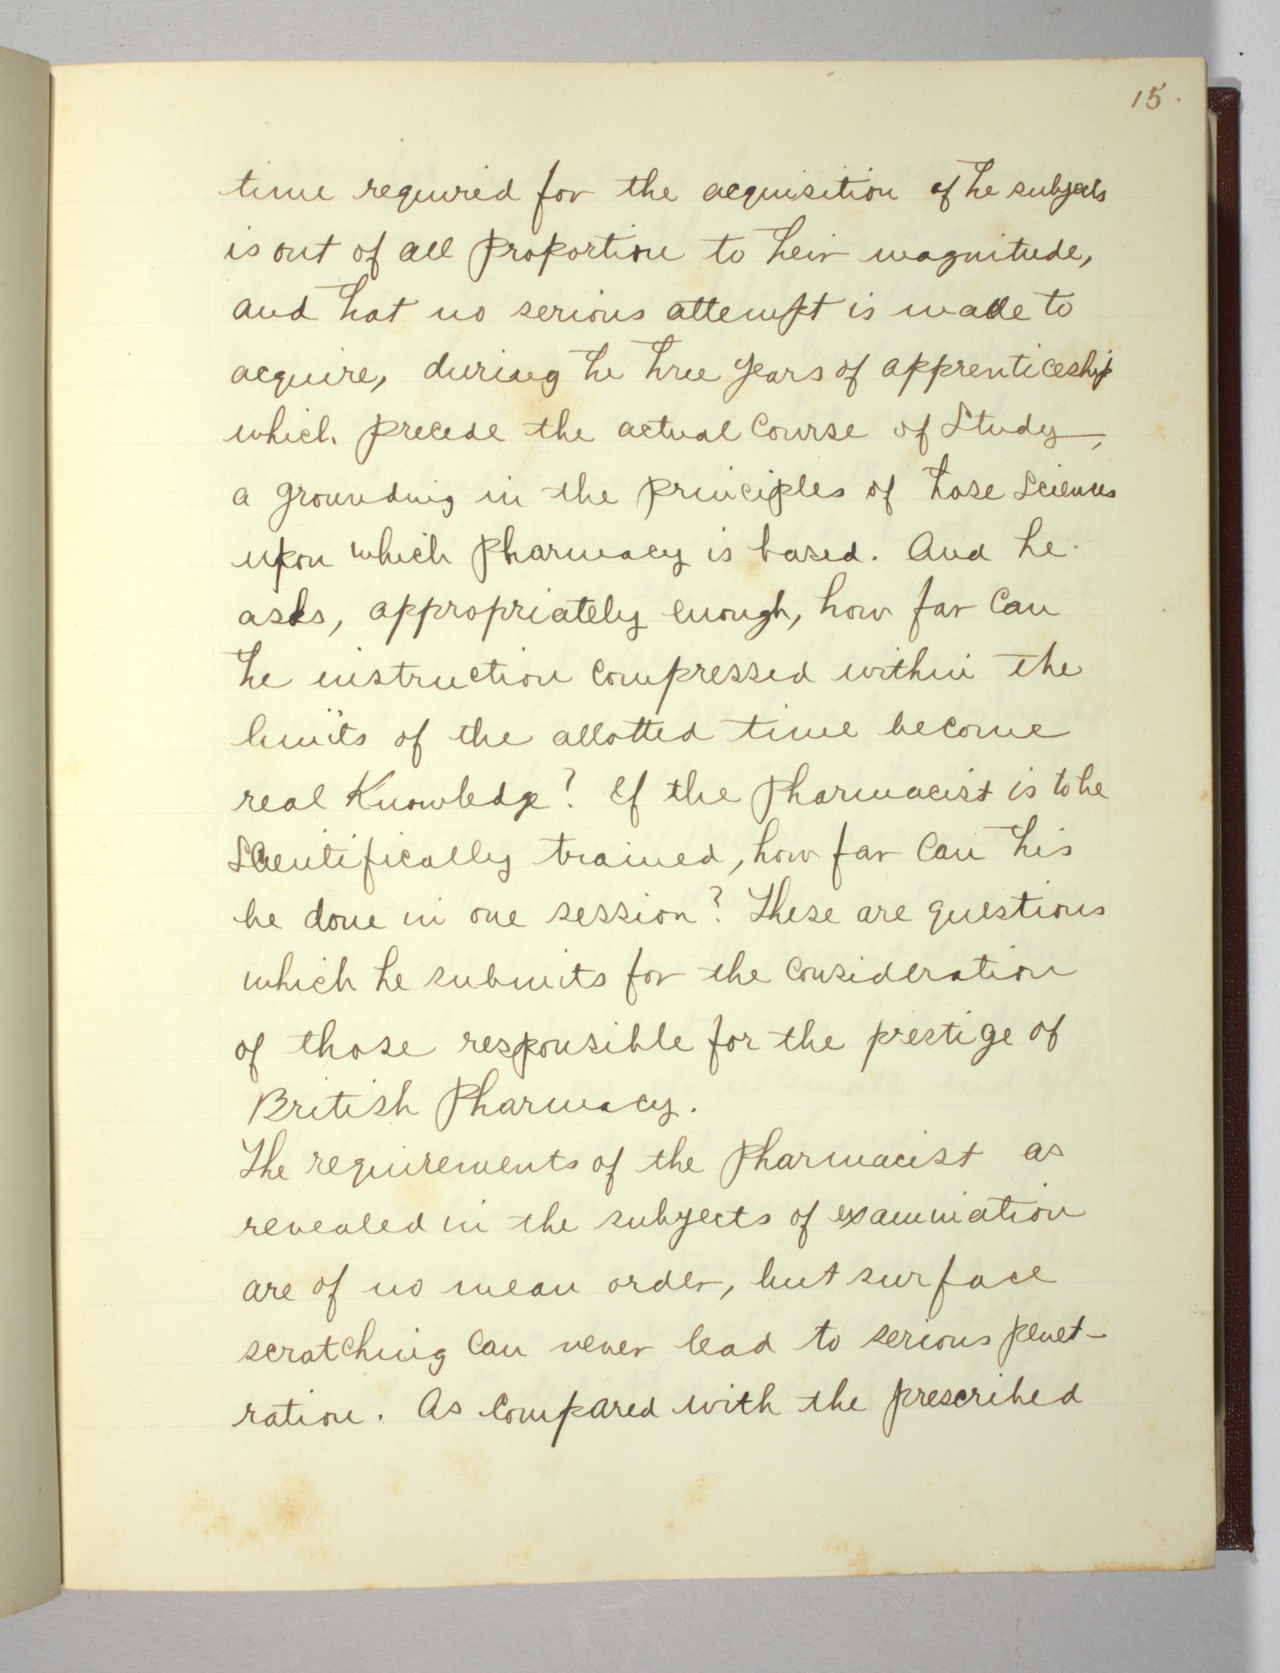 15.
time required for the acquisition of the subjects
is out of all proportion to their magnitude,
and that no serious attempt is made to
acquire, during the three years of apprenticeship
which precede the actual course of study,
a grounding in the principles of those sciences
upon which Pharmacy is based. And he
asks, appropriately enough, how far can
the instruction compressed within the
limits of the allotted time become
real knowledge? If the Pharmacist is to be
scientifically trained, how far can this
be done in one session? These are questions
which he submits for the consideration
of those responsible for the prestige of
British Pharmacy.
The requirements of the Pharmacist as
revealed in the subjects of examination
are of no mean order, but surface
scratching can never lead to serious penet-
ration. As compared with the prescribed